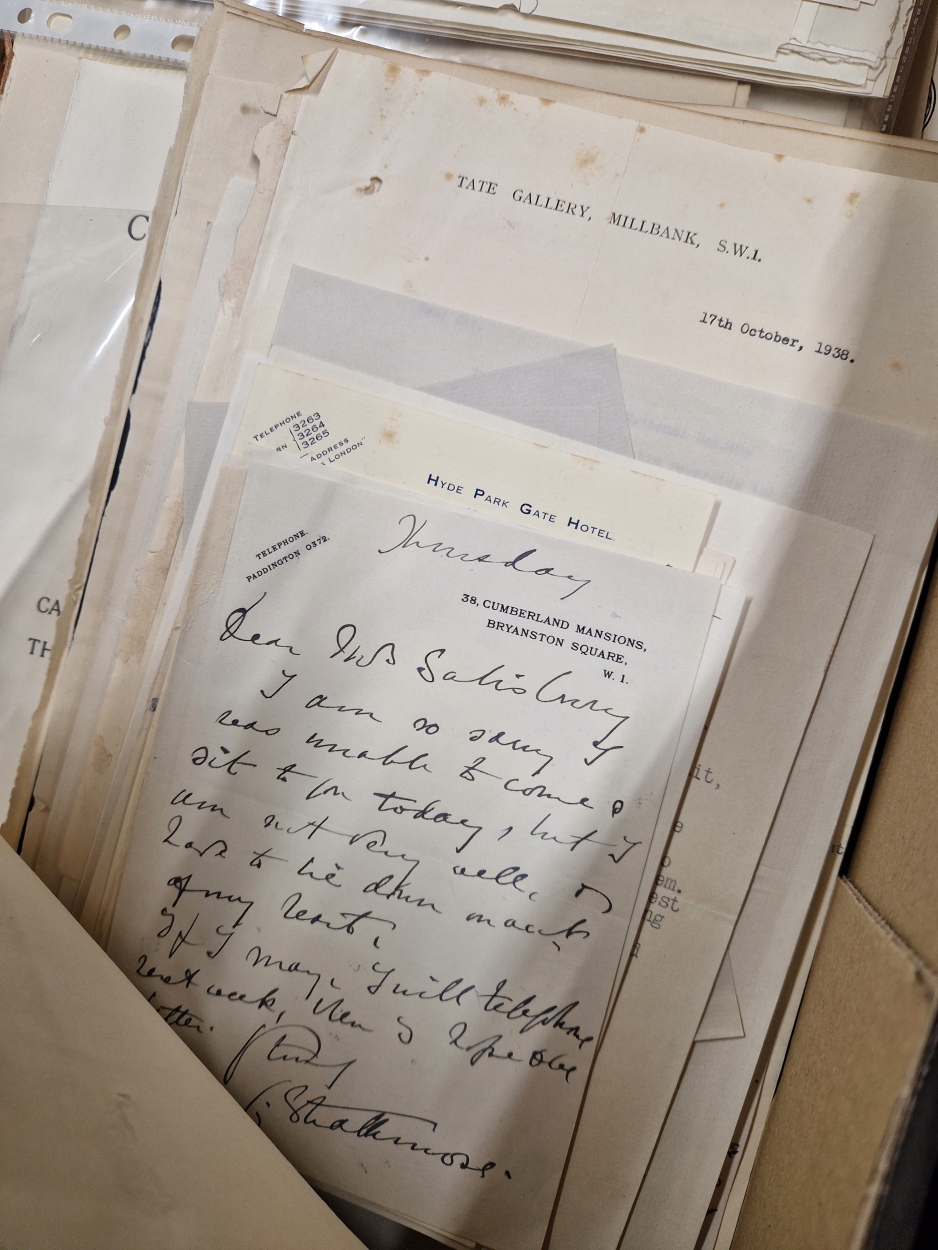 C
CA
TH
TATE GALLERY, MILLBANK, S.W.1.
17th October, 1938.
TELEPHONE
3263
3264
3265
RN
ADDRESS
LONDON"
HYDE PARK GATE HOTEL.
TELEPHONE.
PADDINGTON 0372.
Thursday
38, CUMBERLAND MANSIONS,
BRYANSTON SQUARE,
W. 1.
Dear Mrs Salisbury
I am so sorry I
was unable to come &
sit to you today, but I
am not very well, &
have to lie down much
of my
If I may, I will telephone
next week, when I hope to be
better.
Strathmore.
it,
e
o
em.
est
ng
s